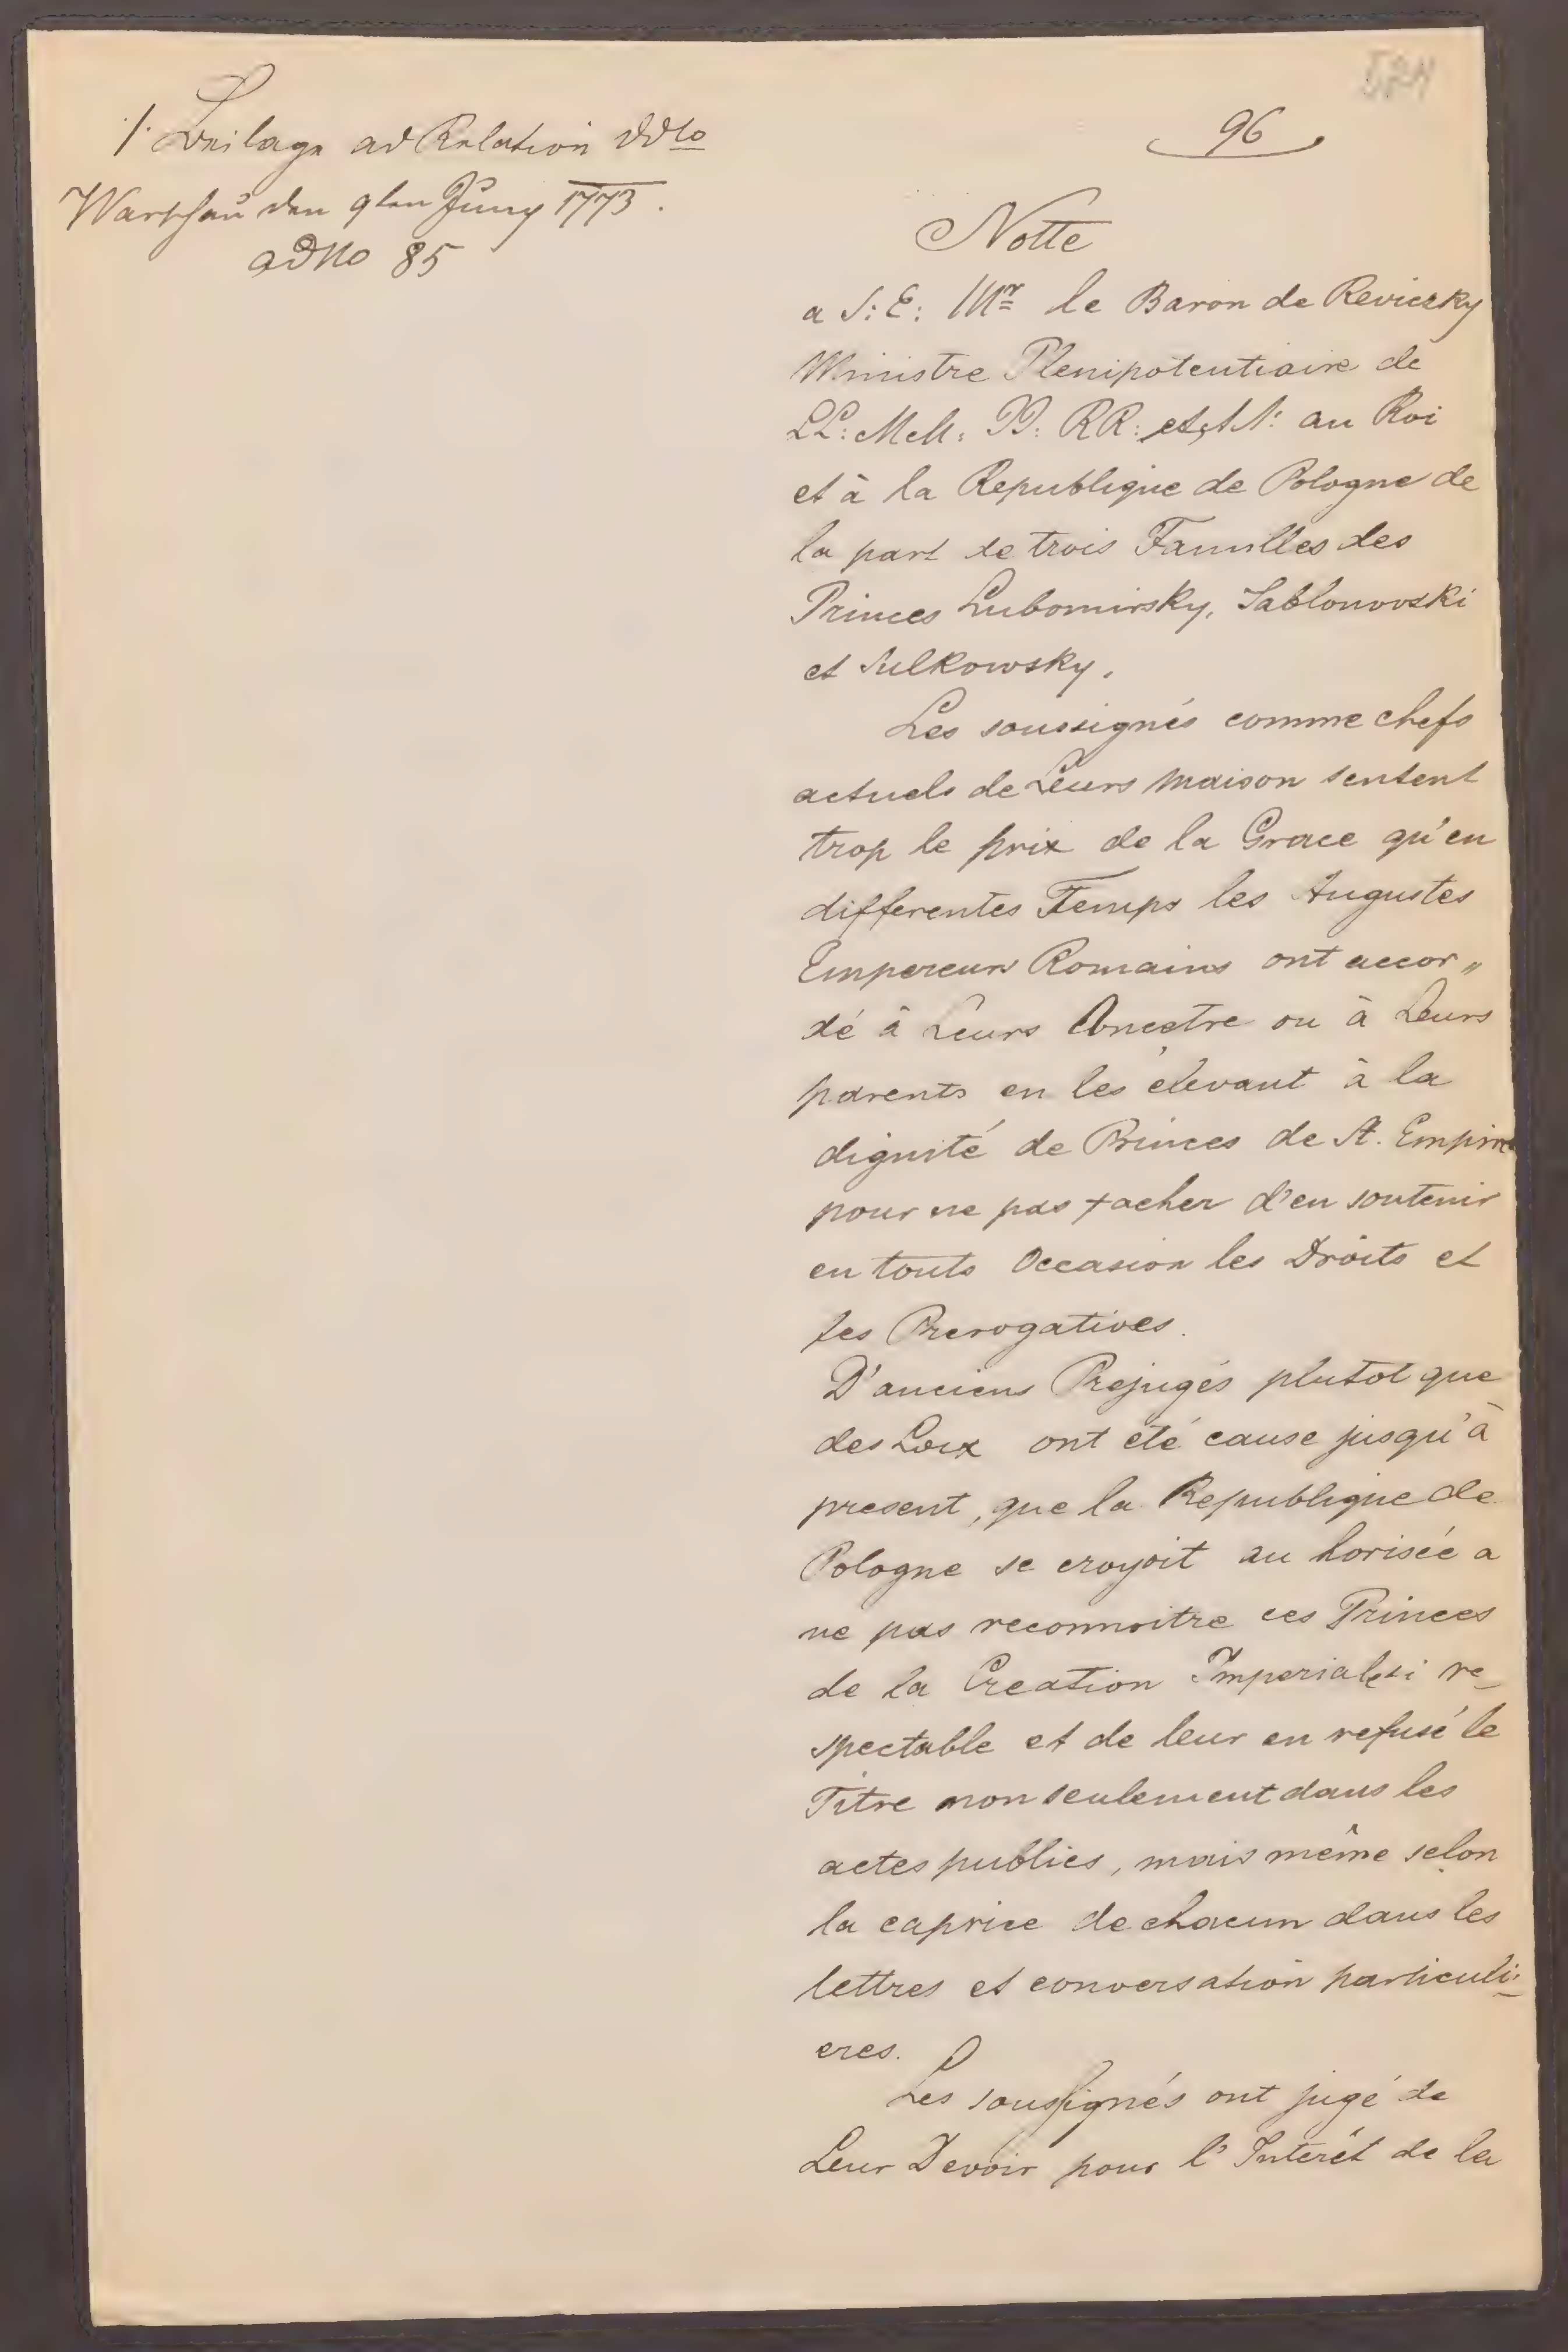 /. Beilage ad Relation ddto
Warschau den 9ten Juny 1773.
adNo 85
96
Notte
a S: E: Mr le Baron de Reviczky
Ministre Plenipotentiaire de
LL: MM: II: RR: et AA: au Roi
et à la Republique de Pologne de
la part de trois Familles des
Princes Lubomirsky, Jablonovski
et Sulkowsky.
Les soussignés comme chefs
actuels de Leurs maison sentent
trop le prix de la Grace qu'en
differentes Temps les Augustes
Empereurs Romains ont accor„
dé à Leurs Ancetre ou à Leurs
parents en les élevant à la
dignité de Princes de St. Empire
pour ne pas tacher d'en soutenir
en touts Occasion les Droits et
les Prerogatives.
D'anciens Prejugés plutot que
des Loix ont été cause jusqu'à
present, que la Republique de
Pologne se croyoit authorisée a
ne pas reconnoitre ces Princes
de la Creation Imperiale si re-
spectable et de leur en refusé le
Titre non seulement dans les
actes publics, mais même selon
la caprice de chacun dans les
lettres et conversation particuli-
eres.
Les soussignés ont jugé de
Leur Devoir pour l'Interêt de la